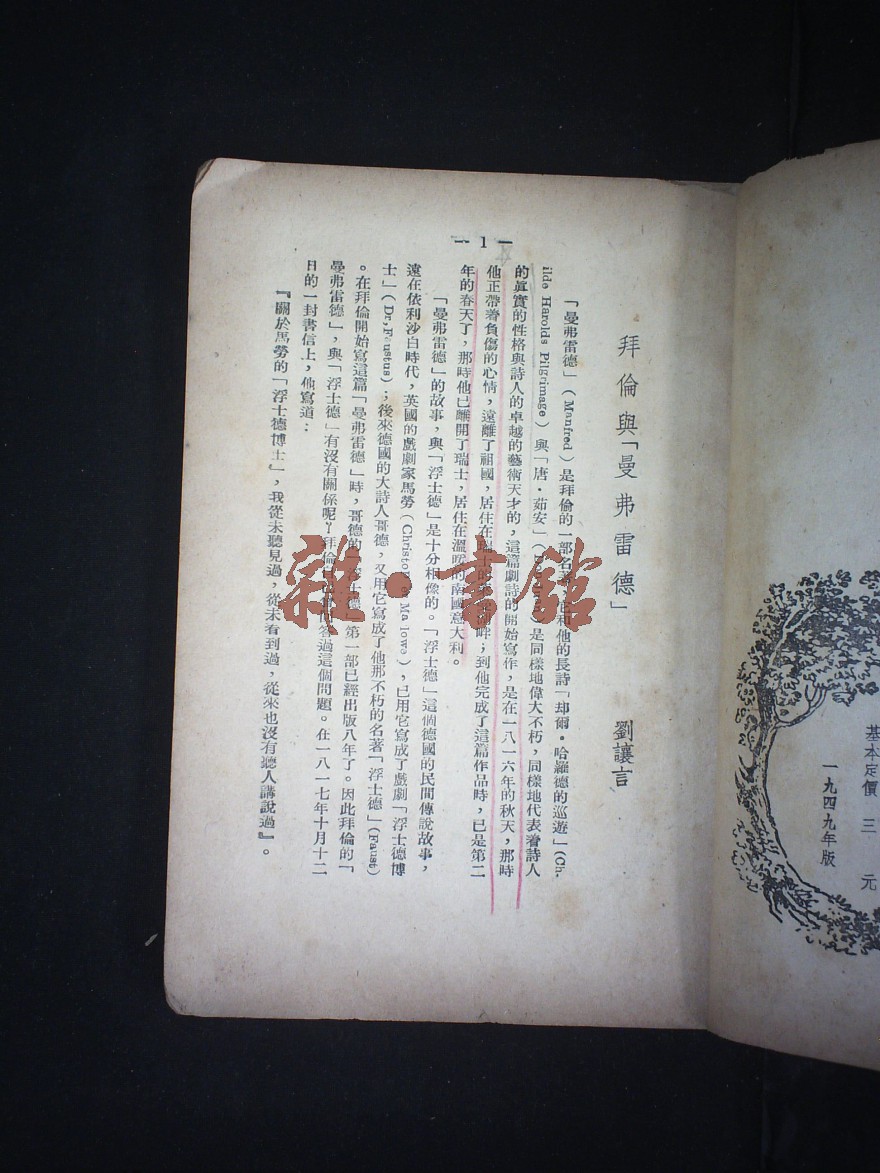 基本定價 三 元
一九四九年版
拜倫與「曼弗雷德」
劉讓言
「曼弗雷德」(Manfred)是拜倫的一部名 和他的長詩「却爾·哈羅德的巡遊」(Ch-
ilde Harolds Pilgrimage)與「唐·茹安」 是同樣地偉大不朽,同樣地代表着詩人
的眞實的性格與詩人的卓越的藝術天才的,這篇劇詩的開始寫作,是在一八一六年的秋天,那時
他正帶着負傷的心情,遠離了祖國,居住在瑞士的 畔;到他完成了這篇作品時,已是第二
年的春天了,那時他已離開了瑞士,居住在溫暖的南國意大利。
「曼弗雷德」的故事,與「浮士德」是十分相像的。「浮士德」這個德國的民間傳說故事,
遠在依利沙白時代,英國的戲劇家馬勞(Christo Ma lowe),已用它寫成了戲劇「浮士德博
士」(Dr,Faustus);後來德國的大詩人哥德,又用它寫成了他那不朽的名著「浮士德」(Faust)
。在拜倫開始寫這篇「曼弗雷德」時,哥德的「浮士德」第一部已經出版八年了。因此拜倫的「
曼弗雷德」,與「浮士德」有沒有關係呢?拜倫 答過這個問題。在一八一七年十月十二
日的一封書信上,他寫道:
『關於馬勞的「浮士德博士」,我從未聽見過,從未看到過,從來也沒有聽人講說過』。
— 1 —
雜·書館